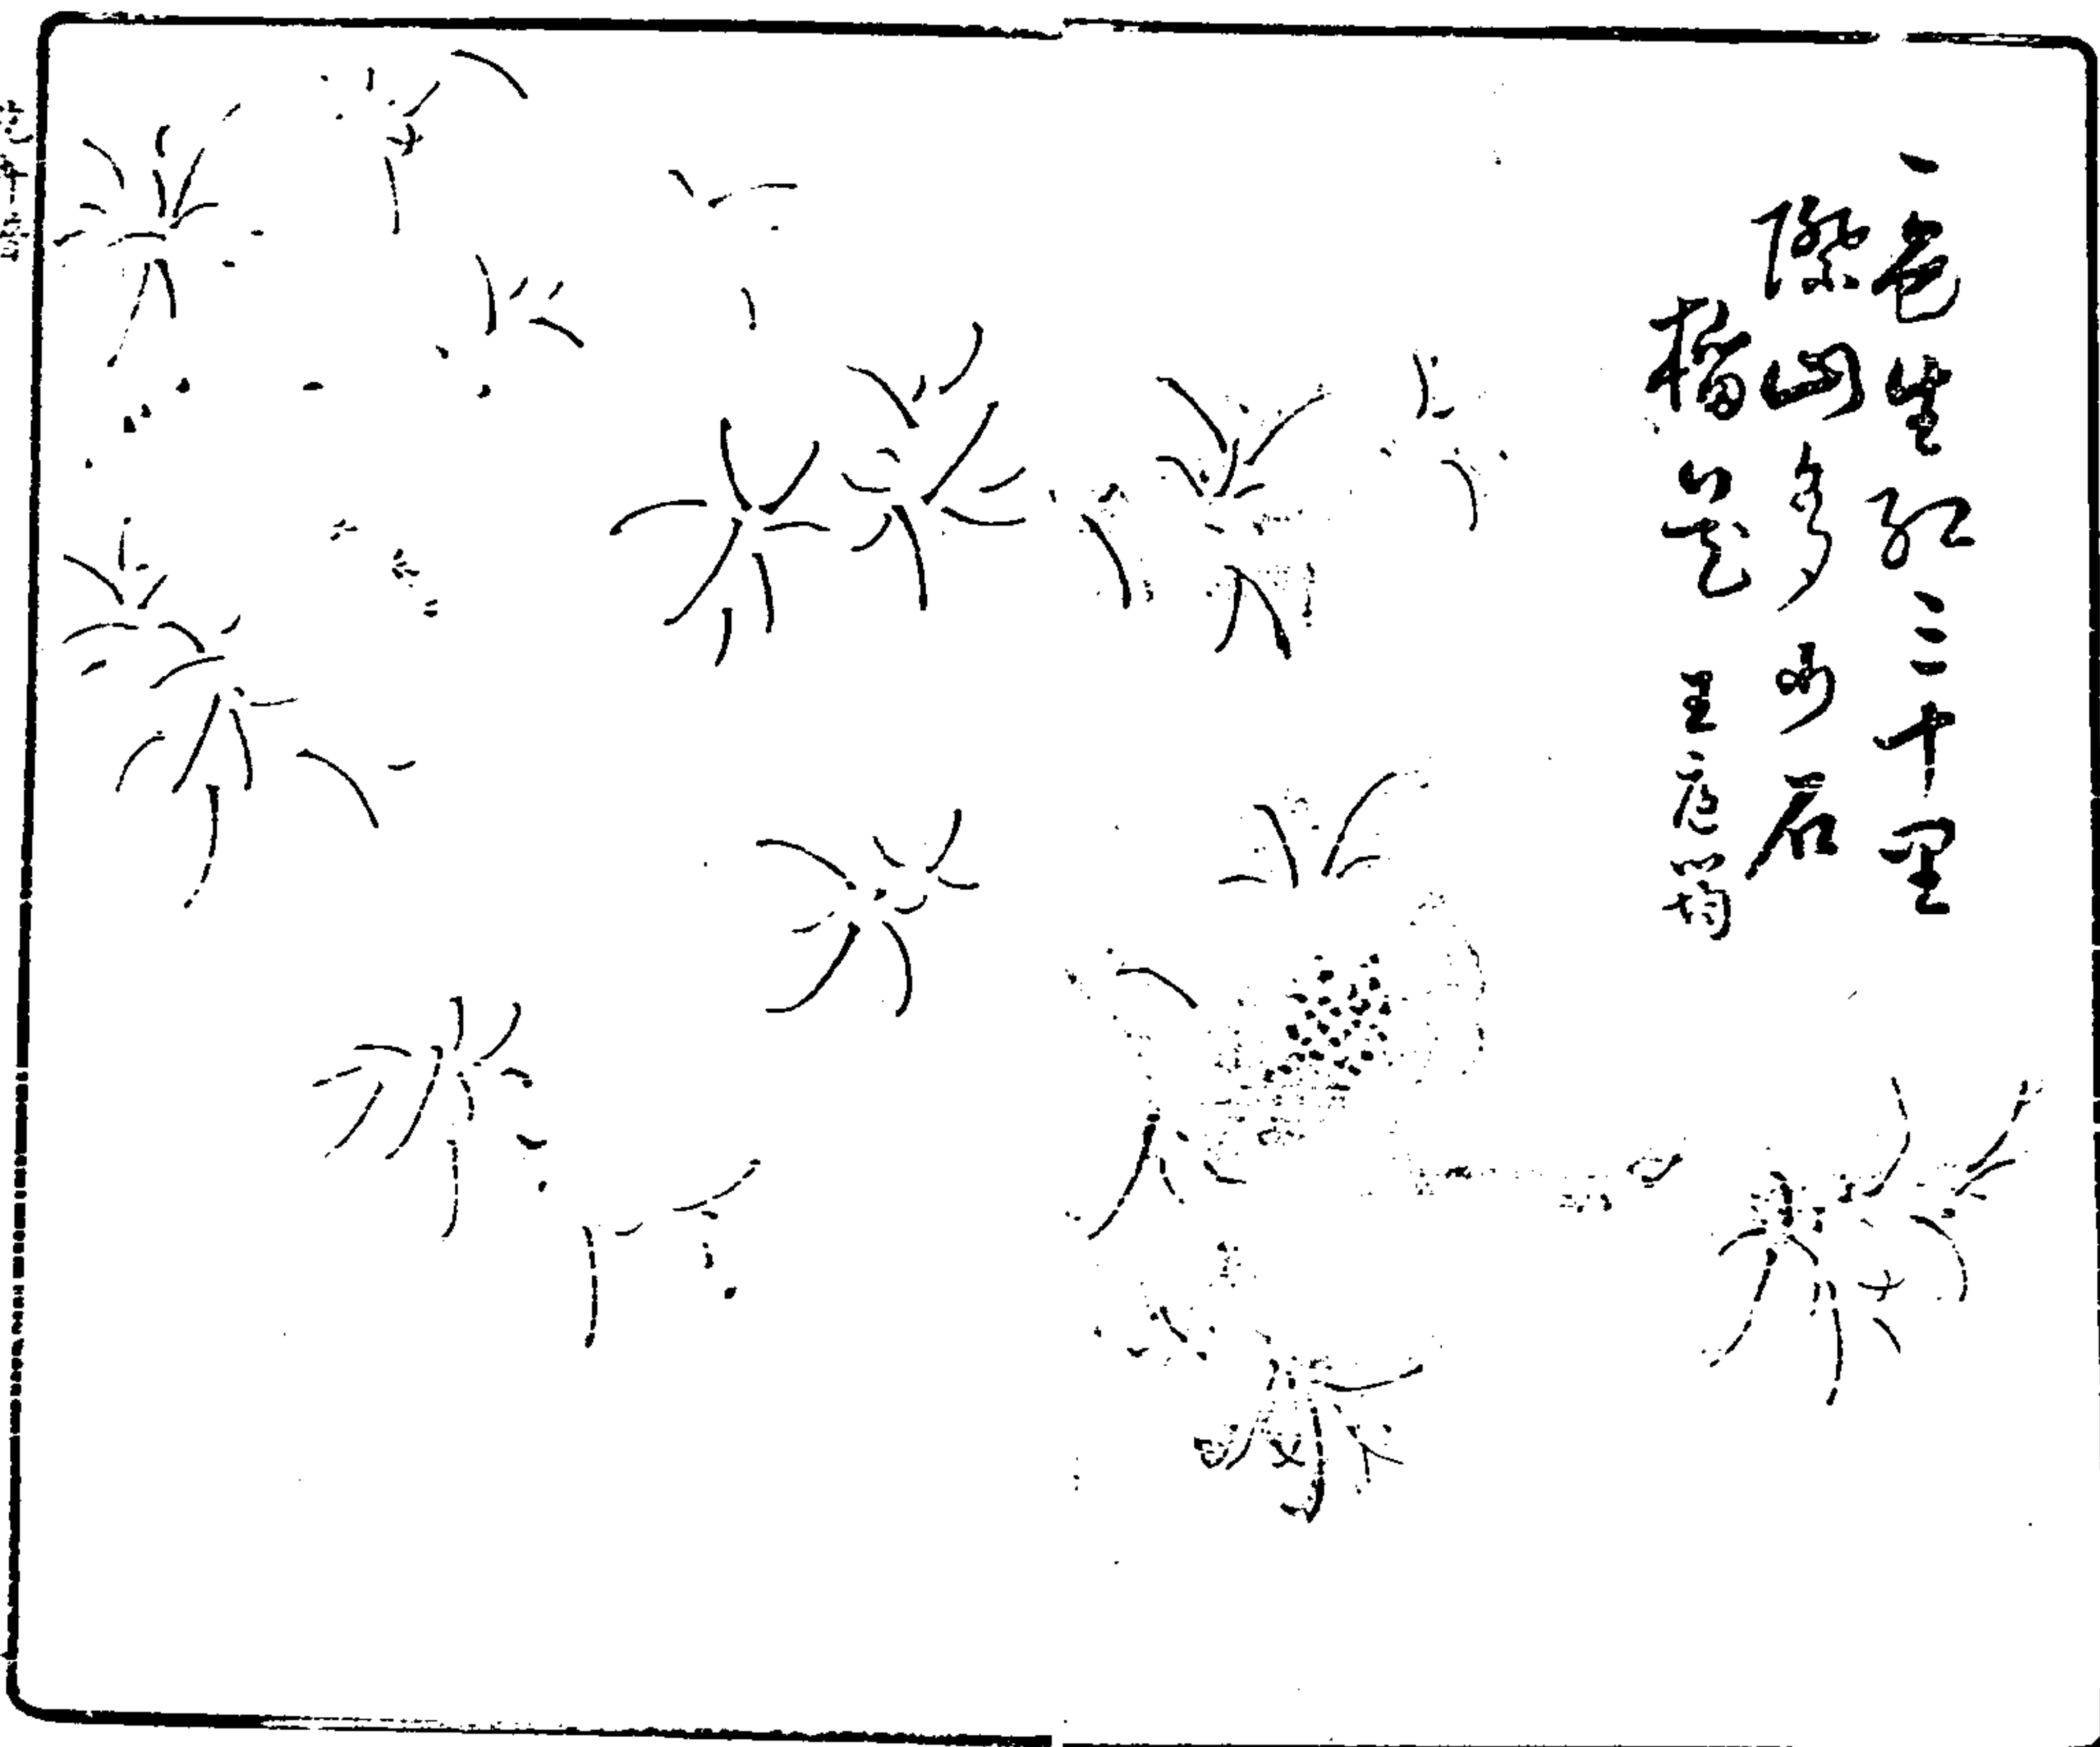 一色生紅三十里
際山多少石
榴花 王庭筠